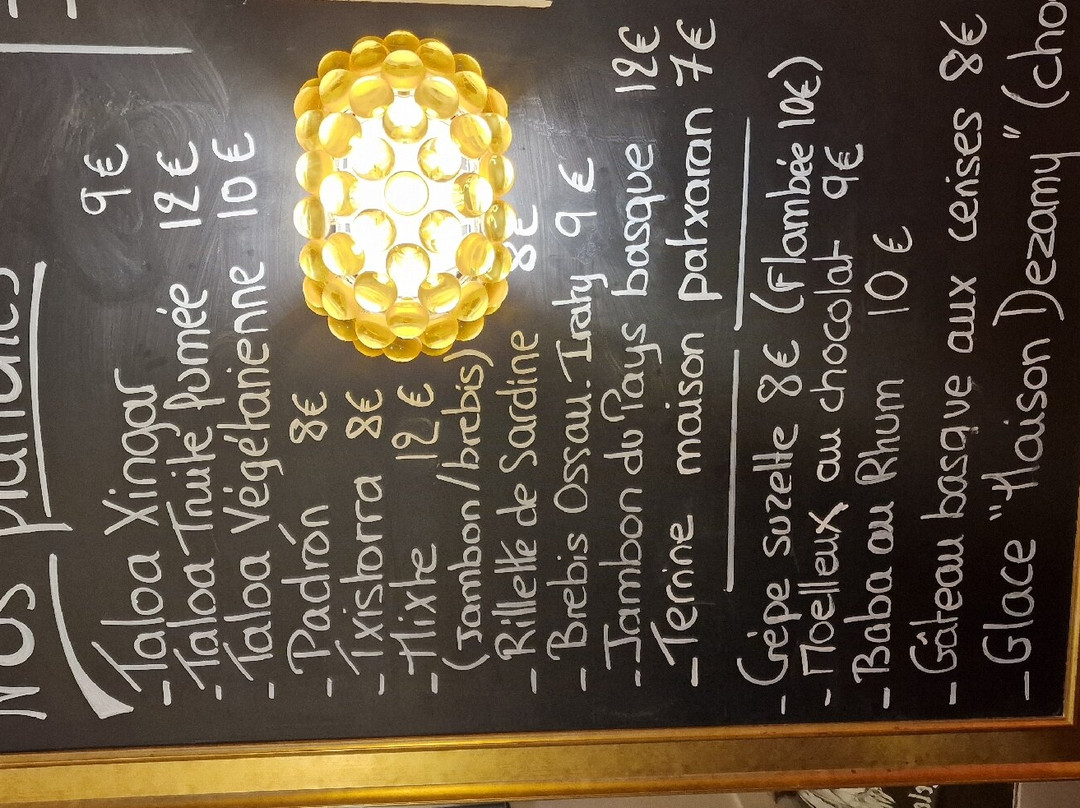 Nos planches
- Taloa Xingar 9€
- Taloa Truite fumée 12€
- Taloa Végétarienne 10€
- Padrón 8€
- Txistorra 8€
- Mixte 12€
(Jambon/brebis)
- Rillette de Sardine 8€
- Brebis Ossau.Iraty 9€
- Jambon du Pays basque 12€
- Terrine maison patxaran 7€
- Crêpe suzette 8€ (Flambée 10€)
- Moelleux au chocolat 9€
- Baba au Rhum 10€
- Gâteau basque aux cerises 8€
- Glace "Maison Dezamy" (cho